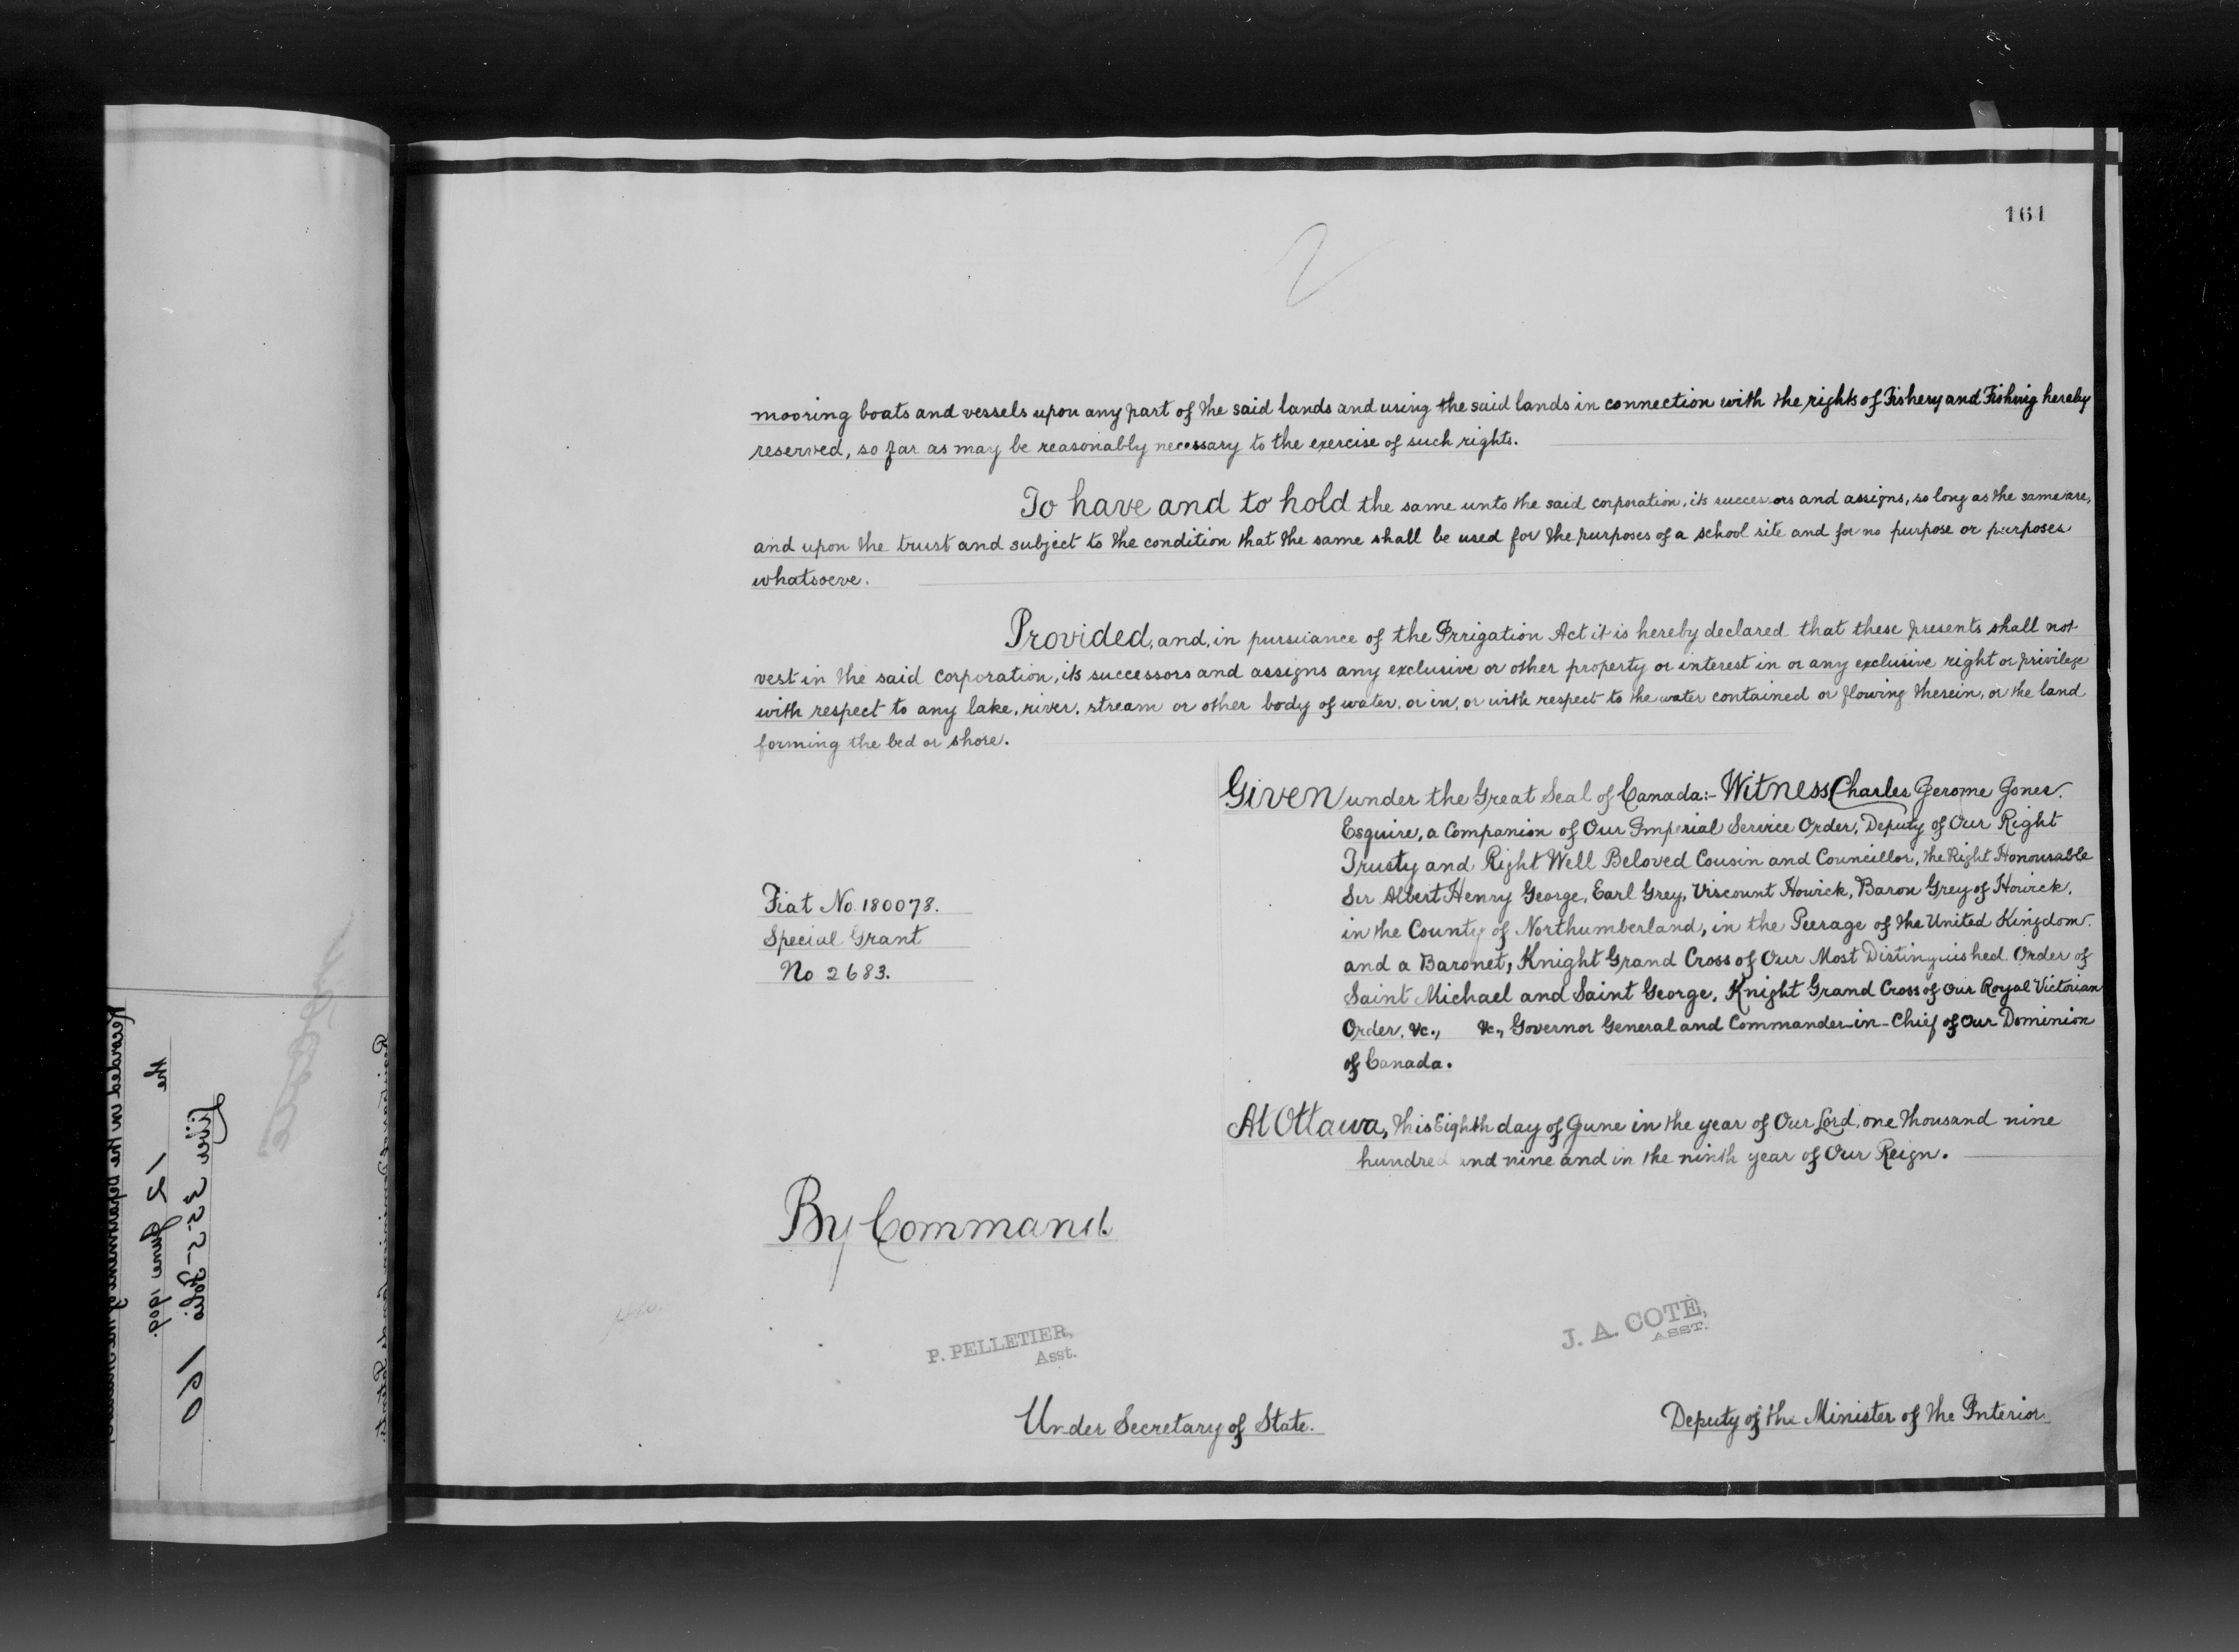 161
mooring boats and vessels upon any part of the said lands and using the said lands in connection with the rights of Fishery and Fishing hereby
reserved, so far as may be reasonably necessary to the exercise of such rights.
To have and to hold the same unto the said corporation, its successors and assigns, so long as the same are,
and upon the trust and subject to the condition that the same shall be used for the purposes of a school site and for no purpose or purposes
whatsoeve.
Provided, and, in pursuance of the Irrigation Act it is hereby declared that these presents shall not
vest in the said corporation, its successors and assigns any exclusive or other property or interest in or any exclusive right or privilege
with respect to any lake, river, stream or other body of water, or in, or with respect to the water contained or flowing therein, or the land
forming the bed or shore.
Given under the Great Seal of Canada:- Witness Charles Jerome Jones.
Esquire, a Companion of Our Imperial Service Order, Deputy of Our Right
Trusty and Right Well Beloved Cousin and Councillor, the Right Honourable
Sir Albert Henry George, Earl Grey, Viscount Howick, Baron Grey of Howick,
in the County of Northumberland, in the Peerage of the United Kingdom.
and a Baronet, Knight Grand Cross of Our Most Distinguished Order of
Saint Michael and Saint George, Knight Grand Cross of Our Royal Victorian
Order, &c., &c., Governor General and Commander-in-Chief of Our Dominion
of Canada.
Fiat No. 180078.
Special Grant
No 2683.
At Ottawa, this Eighth day of June in the year of Our Lord, one thousand nine
hundred and nine and in the ninth year of Our Reign.
By Command.
P. PELLETIER,
Asst.
J. A. COTÉ,
ASST.
Under Secretary of State.
Deputy of the Minister of the Interior.
Recorded in the Department of
the 12 June 1909.
Liber 355 Folio 160